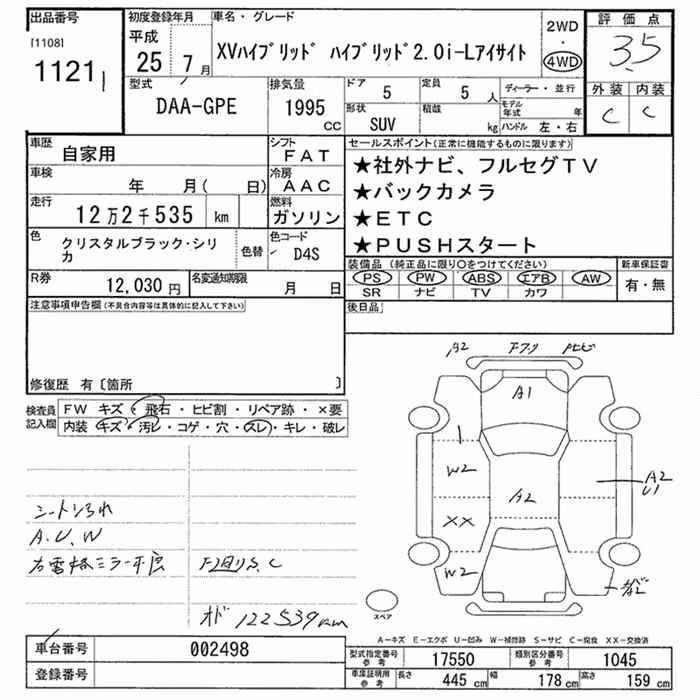 出品番号 初度登録年月 車名・グレード 2WD ・ 4WD 評価点
[1108] 1121 平成 25 7月 XVハイブリッド ハイブリッド2.0i-Lアイサイト 3.5
外装 内装
C C
型式 排気量 ドア 5 定員 5人 ディーラー・並行
DAA-GPE 1995 CC 形状 SUV 積載 kg モデル年式 年
ハンドル 左・右
車歴 自家用 シフト FAT セールスポイント(正常に機能するものに限ります)
★社外ナビ、フルセグTV
車検 年 月( 日) 冷房 AAC ★バックカメラ
走行 12万2千535 km 燃料 ガソリン ★ETC
色 クリスタルブラック・シリカ 色替 色コード D4S ★PUSHスタート
装備品(純正品に限り○をつけてください) 新車保証書
R券 12,030円 名変通知期限 月 日 PS PW ABS エアB AW 有・無
SR ナビ TV カワ
注意事項申告欄(不具合内容等は具体的に記入して下さい) 後日品
修復歴 有〔箇所 〕
検査員記入欄 FW キズ・飛石・ヒビ割・リペア跡・×要
内装 キズ・汚レ・コゲ・穴・スレ・キレ・破レ
A2 Fフリ
A1
W2 A2 A2
U1
XX
W2
A,U,W
右電格ミラー不良
オド 122539km
スペア
A-キズ E-エクボ U-凹み W-補修跡 S-サビ C-腐食 XX-交換済
車台番号 002498 型式指定番号 参考 17550 類別区分番号 参考 1045
登録番号 車庫証明用 参考 長さ 445cm 幅 178cm 高さ 159cm